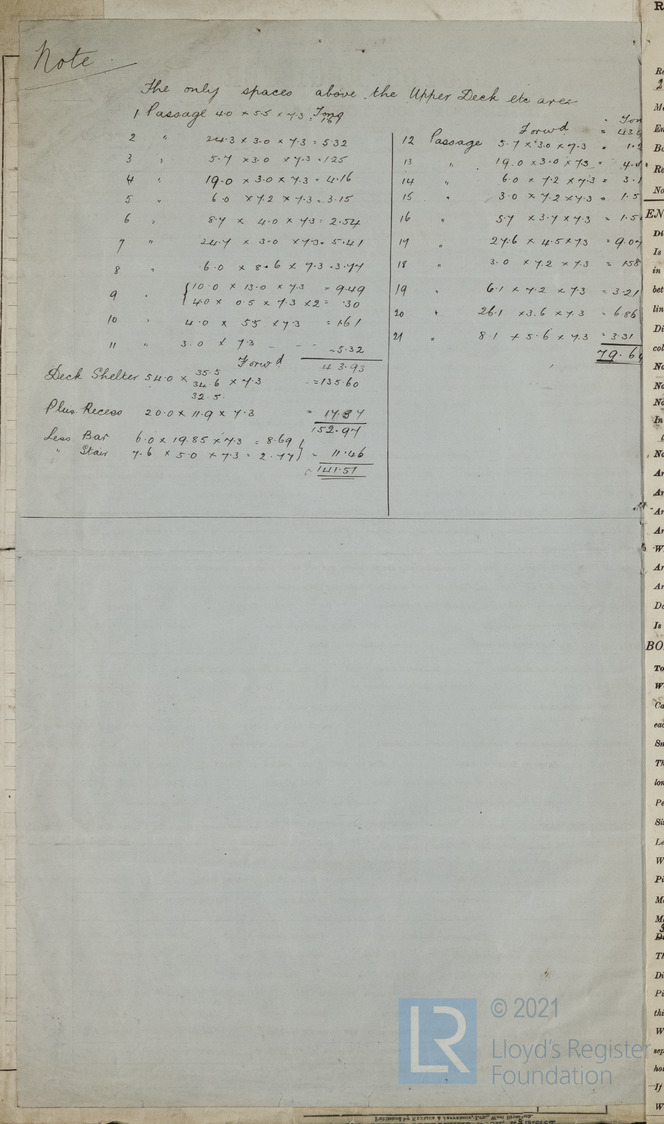 Note
The only spaces above the Upper Deck etc are
1 Passage 4.0 × 5.5 × 7.3 = Tons
2 " 24.3 × 3.0 × 7.3 = 5.32
3 " 5.7 × 3.0 × 7.3 = 1.25
4 " 19.0 × 3.0 × 7.3 = 4.16
5 " 6.0 × 7.2 × 7.3 = 3.15
6 " 8.7 × 4.0 × 7.3 = 2.54
7 " 24.7 × 3.0 × 7.3 = 5.41
8 " 6.0 × 8.6 × 7.3 = 3.77
9 " { 10.0 × 13.0 × 7.3 = 9.49
4.0 × 0.5 × 7.3 × 2 = .30
10 " 4.0 × 5.5 × 7.3 = 1.61
11 " 3.0 × 7.3 - - = 5.32
Forwd 43.93
Deck Shelter 54.0 × 35.5 34.6 32.5 × 7.3 = 135.60
Plus Recess 20.0 × 11.9 × 7.3 = 17.37
152.97
Less Bar 6.0 × 19.85 × 7.3 = 8.69 }
" Stair 7.6 × 5.0 × 7.3 = 2.77 } = 11.46
141.51
Forwd =
12 Passage 5.7 × 3.0 × 7.3 =
13 " 19.0 × 3.0 × 7.3 =
14 " 6.0 × 7.2 × 7.3 = 3.1
15 " 3.0 × 7.2 × 7.3 = 1.5
16 " 5.7 × 3.7 × 7.3 = 1.5
17 " 27.6 × 4.5 × 7.3 = 9.07
18 " 3.0 × 7.2 × 7.3 = 1.58
19 " 6.1 × 7.2 × 7.3 = 3.21
20 " 26.1 × 3.6 × 7.3 = 6.86
21 " 8.1 × 5.6 × 7.3 = 3.31
79.6
© 2021
LR
Lloyd's Register
Foundation